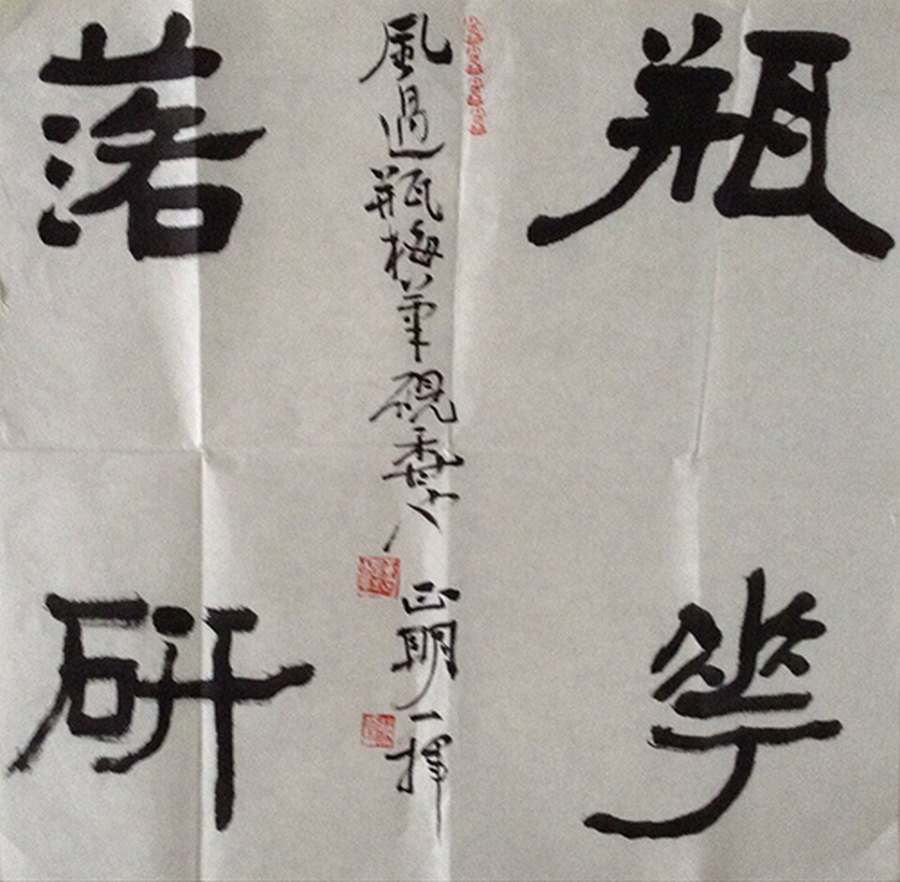 瓶華
風過瓶梅筆硯香 正明一揮
落研